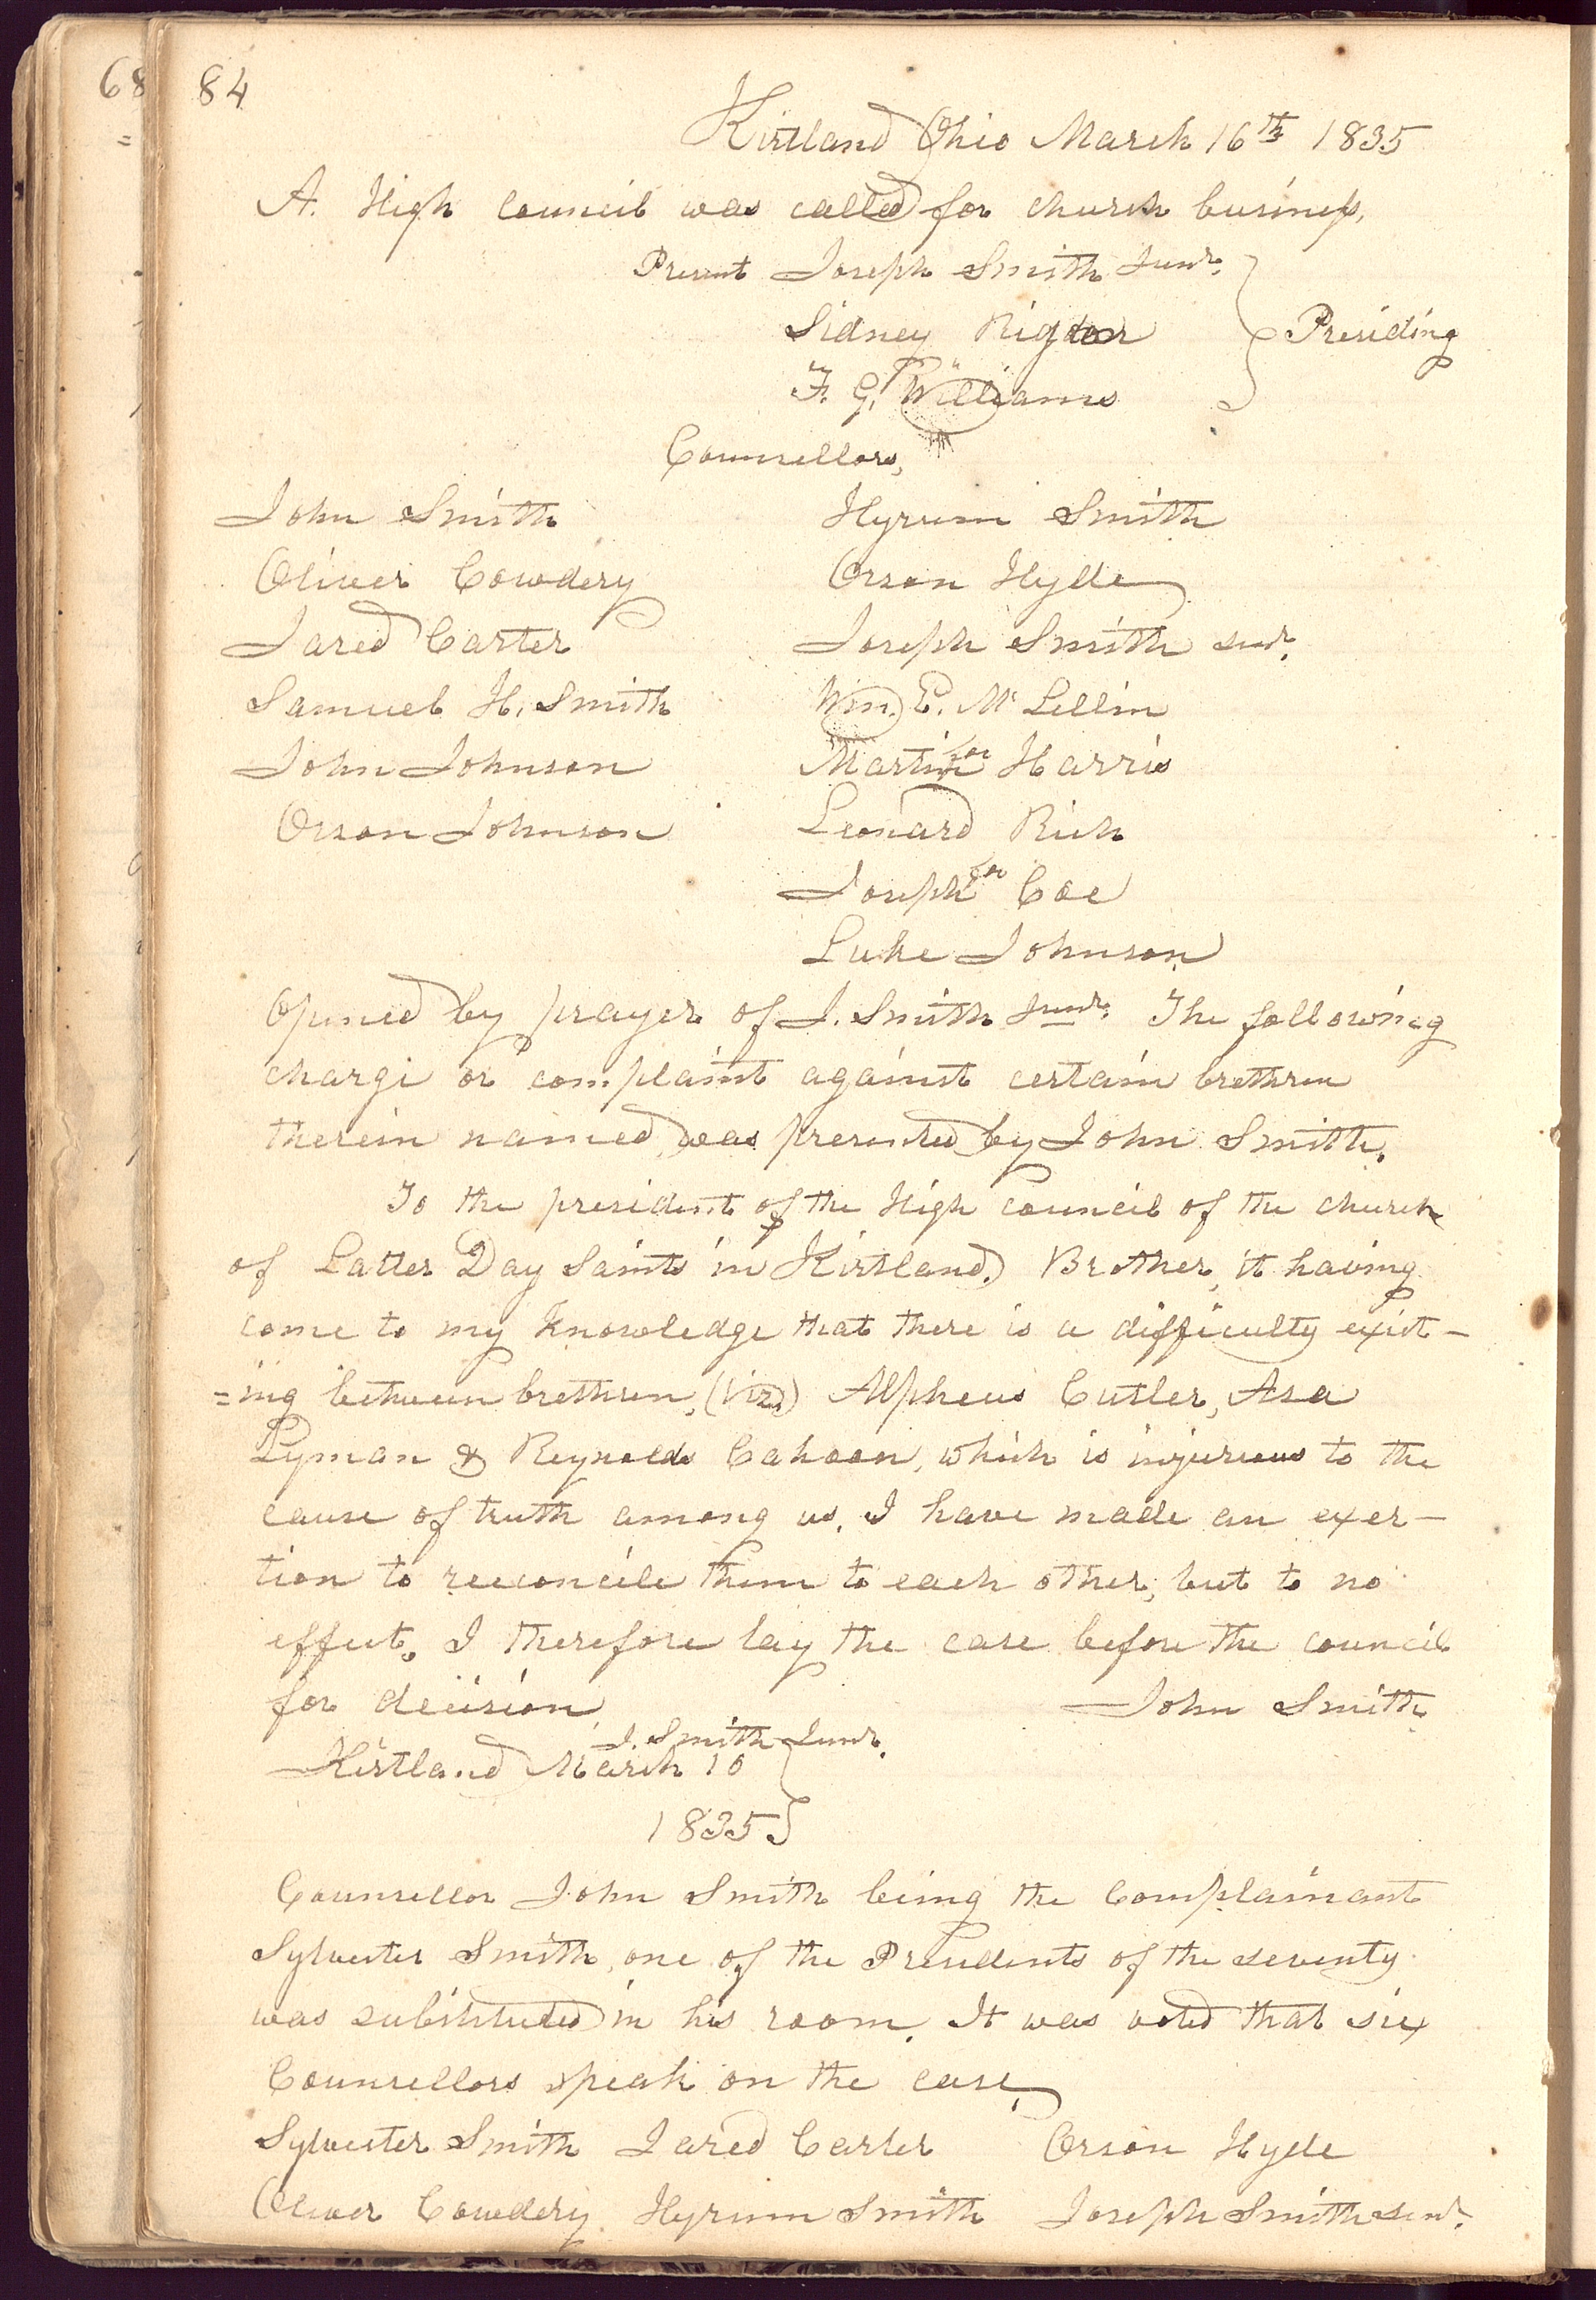 68
84
Kirtland Ohio March 16th 1835
A. High council was called for church business,
Present Joseph Smith Junr.
Sidney Rigdon } Presiding
F. G. Williams
Counsellors,
John Smith Hyrum Smith
Oliver Cowdery Orson Hyde
Jared Carter Joseph Smith senr.
Samuel H. Smith Wm. E. Mc Lellin
John Johnson Martin for Harris
Orson Johnson Leonard Rich
Joseph for Coe
Luke Johnson
Opened by prayer of J. Smith Junr. The following
charge or complaint against certain brethren
therein named, was presented by John Smith.
To the president of the High council of the church
of Latter Day Saints in Kirtland. Brother, it having
come to my knowledge that there is a difficulty exist-
=ing between brethren, (viz.) Alpheus Cutler, Asa
Lyman & Reynolds Cahoon, which is injurious to the
cause of truth among us. I have made an exer-
tion to reeconcile them to each other, but to no
effect. I therefore lay the case before the council
for decision, John Smith
J. Smith Junr.
Kirtland March 16 }
1835
Counsellor John Smith being the complainant
Sylvester Smith, one of the Presidents of the seventy
was substituted in his room. It was voted that six
Counsellors speak on the case,
Sylvester Smith Jared Carter Orson Hyde
Oliver Cowdery Hyrum Smith Joseph Smith senr.